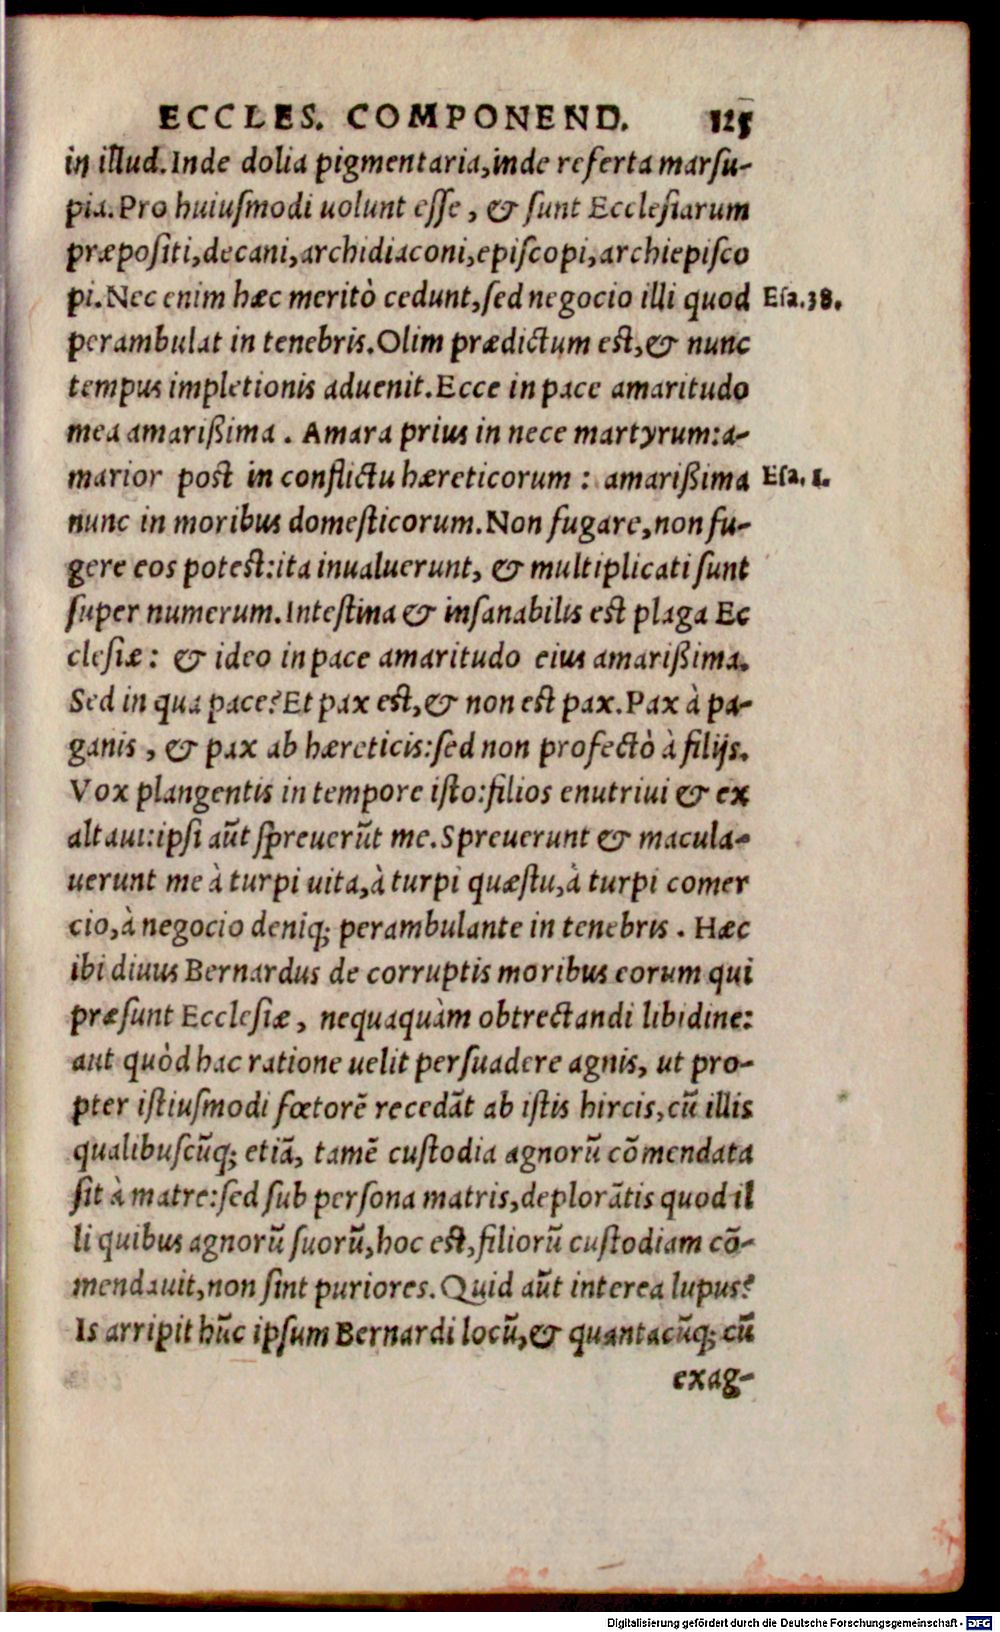 ECCLES. COMPONEND. 125
in illud. Inde dolia pigmentaria, inde referta marsu-
pia. Pro huiusmodi uolunt esse, & sunt Ecclesiarum
præpositi, decani, archidiaconi, episcopi, archiepisco
pi. Nec enim hæc meritò cedunt, sed negocio illi quod Esa. 38.
perambulat in tenebris. Olim prædictum est, & nunc
tempus impletionis aduenit. Ecce in pace amaritudo
mea amarißima. Amara prius in nece martyrum: a-
marior post in conflictu hæreticorum: amarißima Esa. 1.
nunc in moribus domesticorum. Non fugare, non fu-
gere eos potest: ita inualuerunt, & multiplicati sunt
super numerum. Intestina & insanabilis est plaga Ec
clesiæ: & ideo in pace amaritudo eius amarißima.
Sed in qua pace? Et pax est, & non est pax. Pax à pa-
ganis, & pax ab hæreticis: sed non profectò à filijs.
Vox plangentis in tempore isto: filios enutriui & ex
altaui: ipsi aūt spreuerūt me. Spreuerunt & macula-
uerunt me à turpi uita, à turpi quæstu, à turpi comer
cio, à negocio deniq; perambulante in tenebris. Hæc
ibi diuus Bernardus de corruptis moribus eorum qui
præsunt Ecclesiæ, nequaquàm obtrectandi libidine:
aut quòd hac ratione uelit persuadere agnis, ut pro-
pter istiusmodi fœtorē recedāt ab istis hircis, cū illis
qualibuscūq; etiā, tamē custodia agnorū cōmendata
sit à matre: sed sub persona matris, deplorātis quod il
li quibus agnorū suorū, hoc est, filiorū custodiam cō-
mendauit, non sint puriores. Quid aūt interea lupus?
Is arripit hūc ipsum Bernardi locū, & quantacūq; cū
exag-
Digitalisierung gefördert durch die Deutsche Forschungsgemeinschaft - DFG